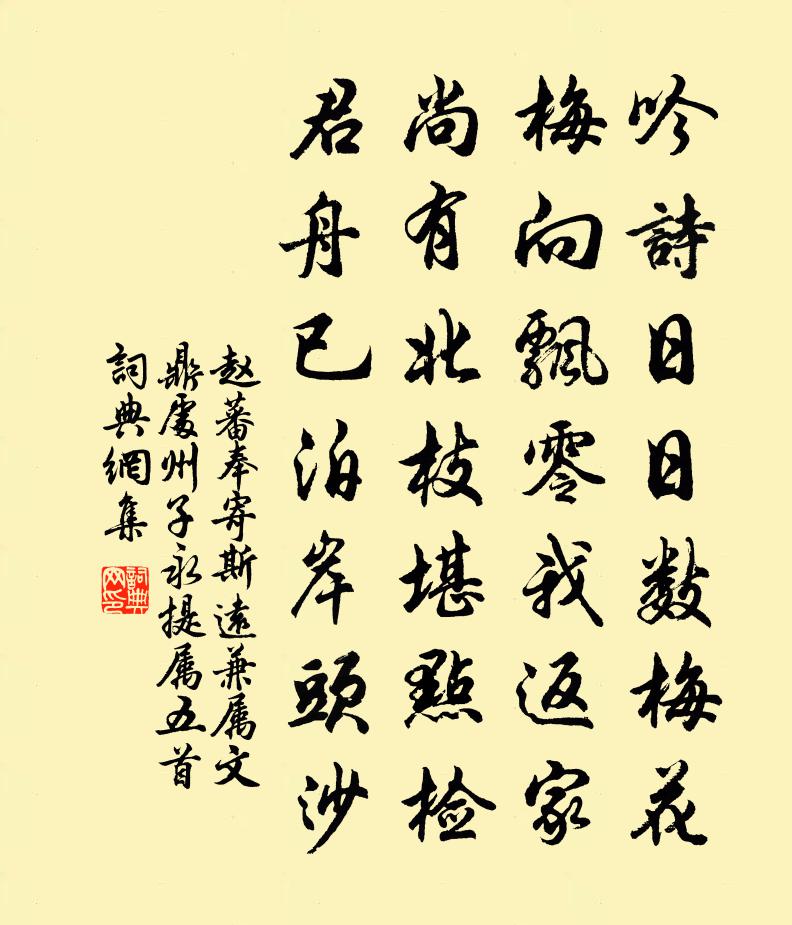 吟詩日日數梅花
梅向飄零我返家
尚有北枝堪點檢
君舟已泊岸頭沙
赵蕃奉寄斯遠兼属文
鼎處州子永提属五首
詞典網集
詞典網印